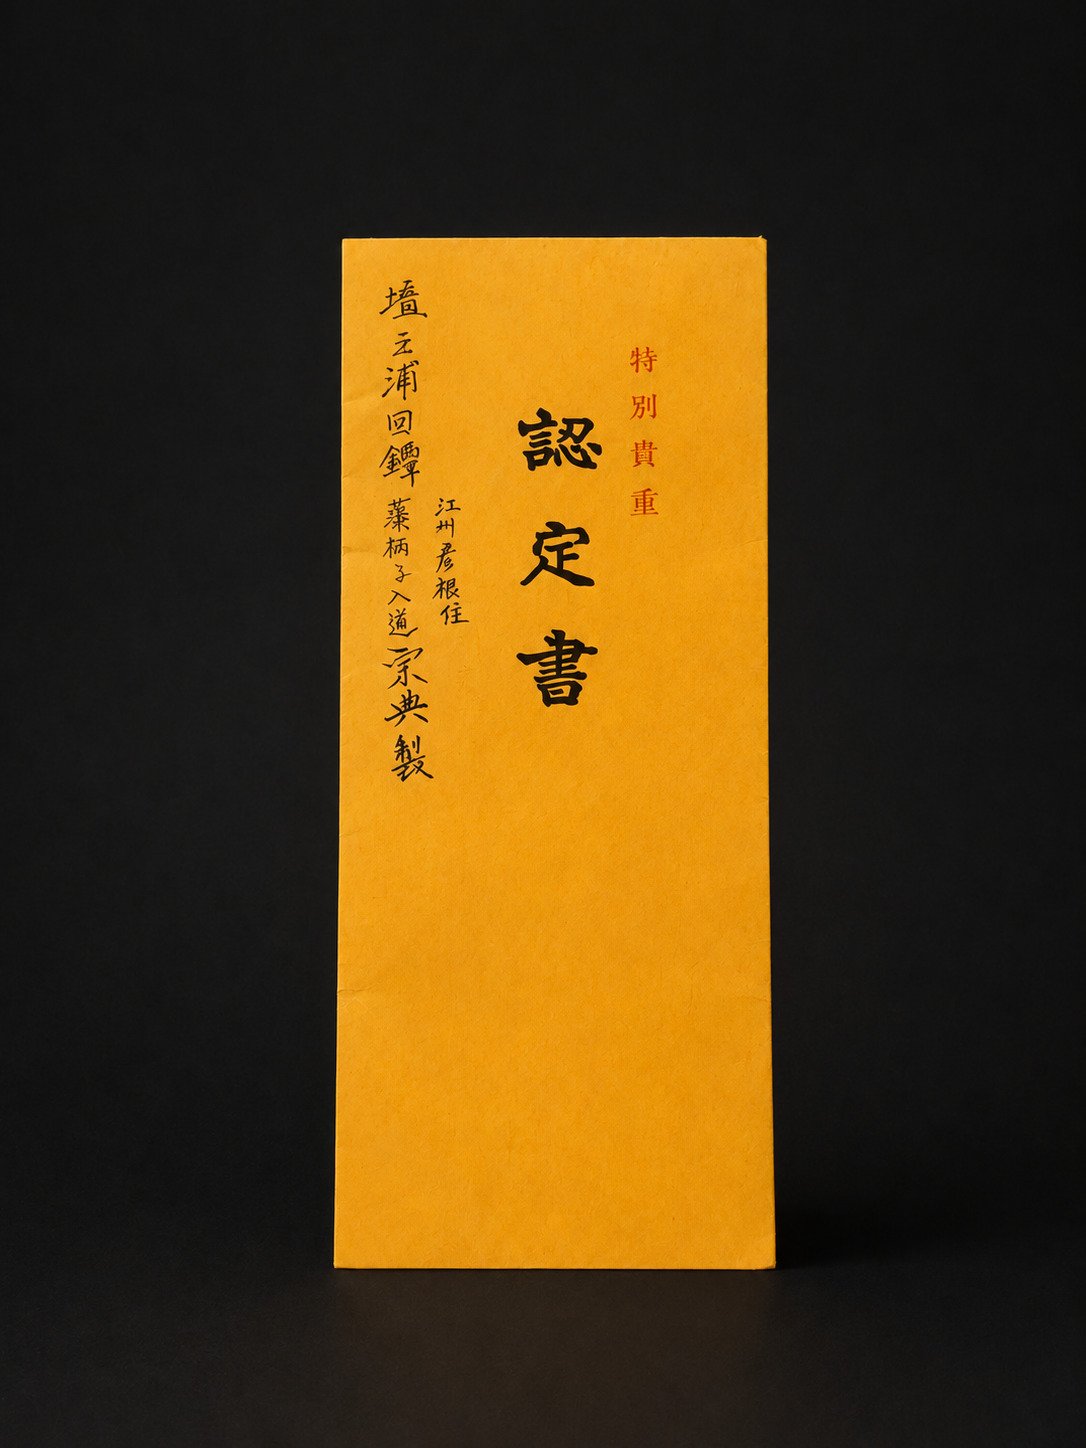 特別貴重
認定書
江州彦根住
壇之浦図鐔 藻柄子入道宗典製